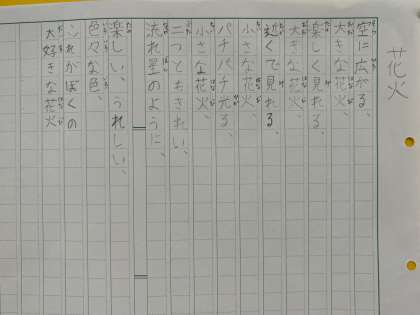 花火
空に広がる、
大きな花火、
楽しく見れる、
大きな花火、
近くで見れる、
小さな花火、
パチパチ光る、
小さな花火、
二つともきれい、
流れ星のように、
楽しい、うれしい、
色々な色、
それがぼくの
大好きな花火